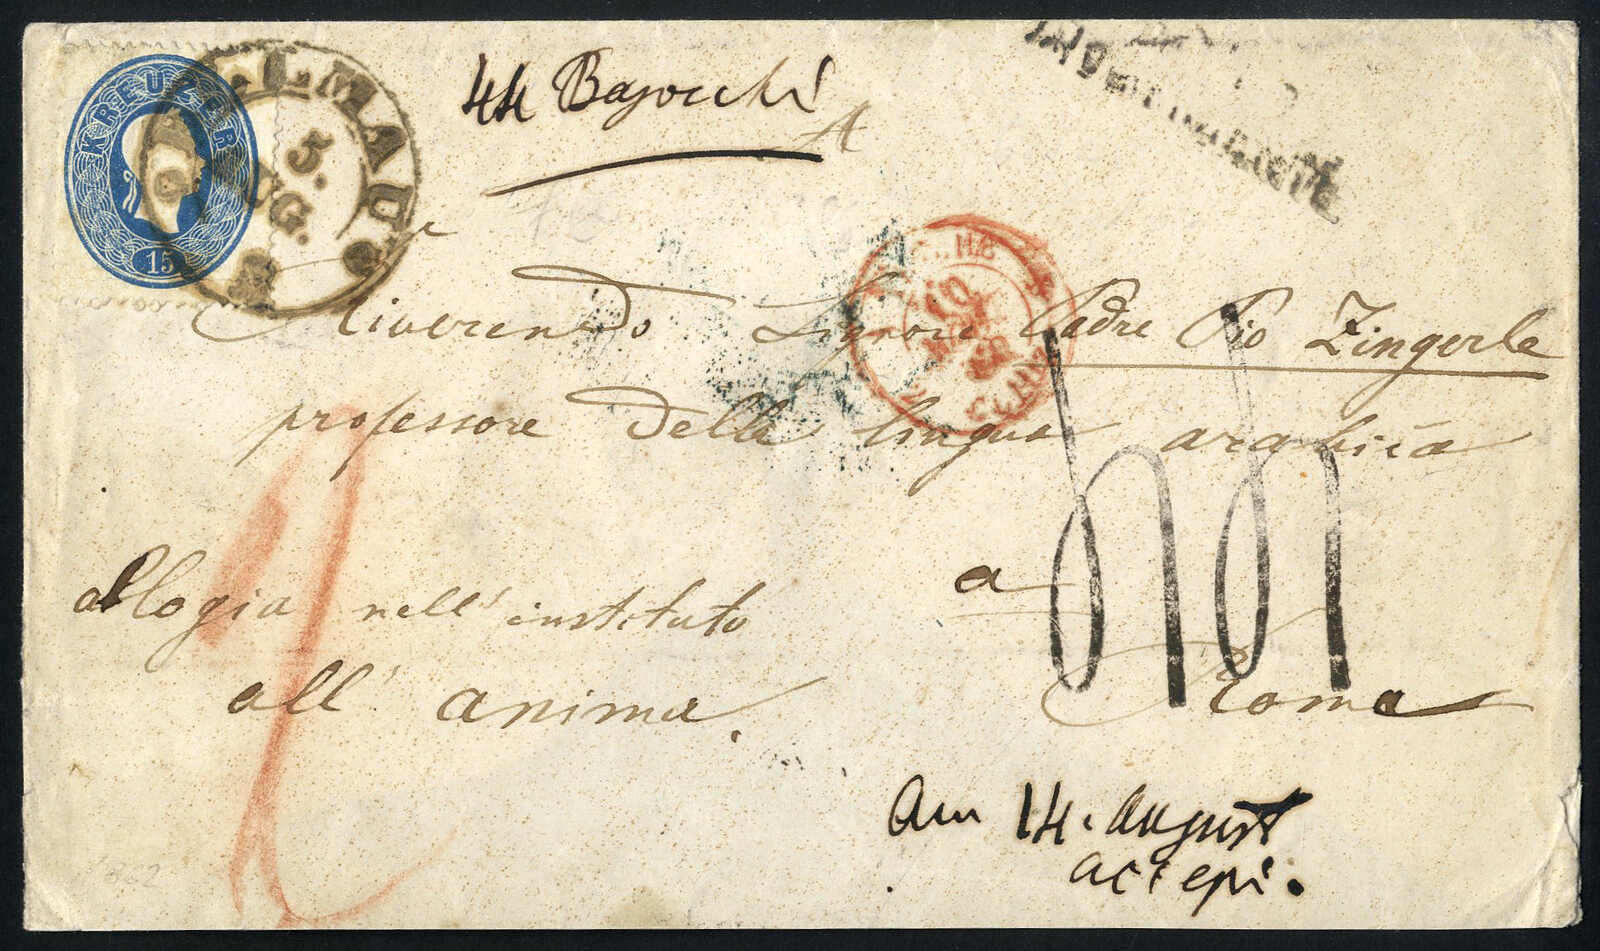 KREUZER
15
5.
UG.
44 Bajocchi
Riverendo Signore Padre Pio Zingerle
professore della lingua arabica
alloggia nell' instituto a
all' anima. Roma
Am 14. August
accepi.